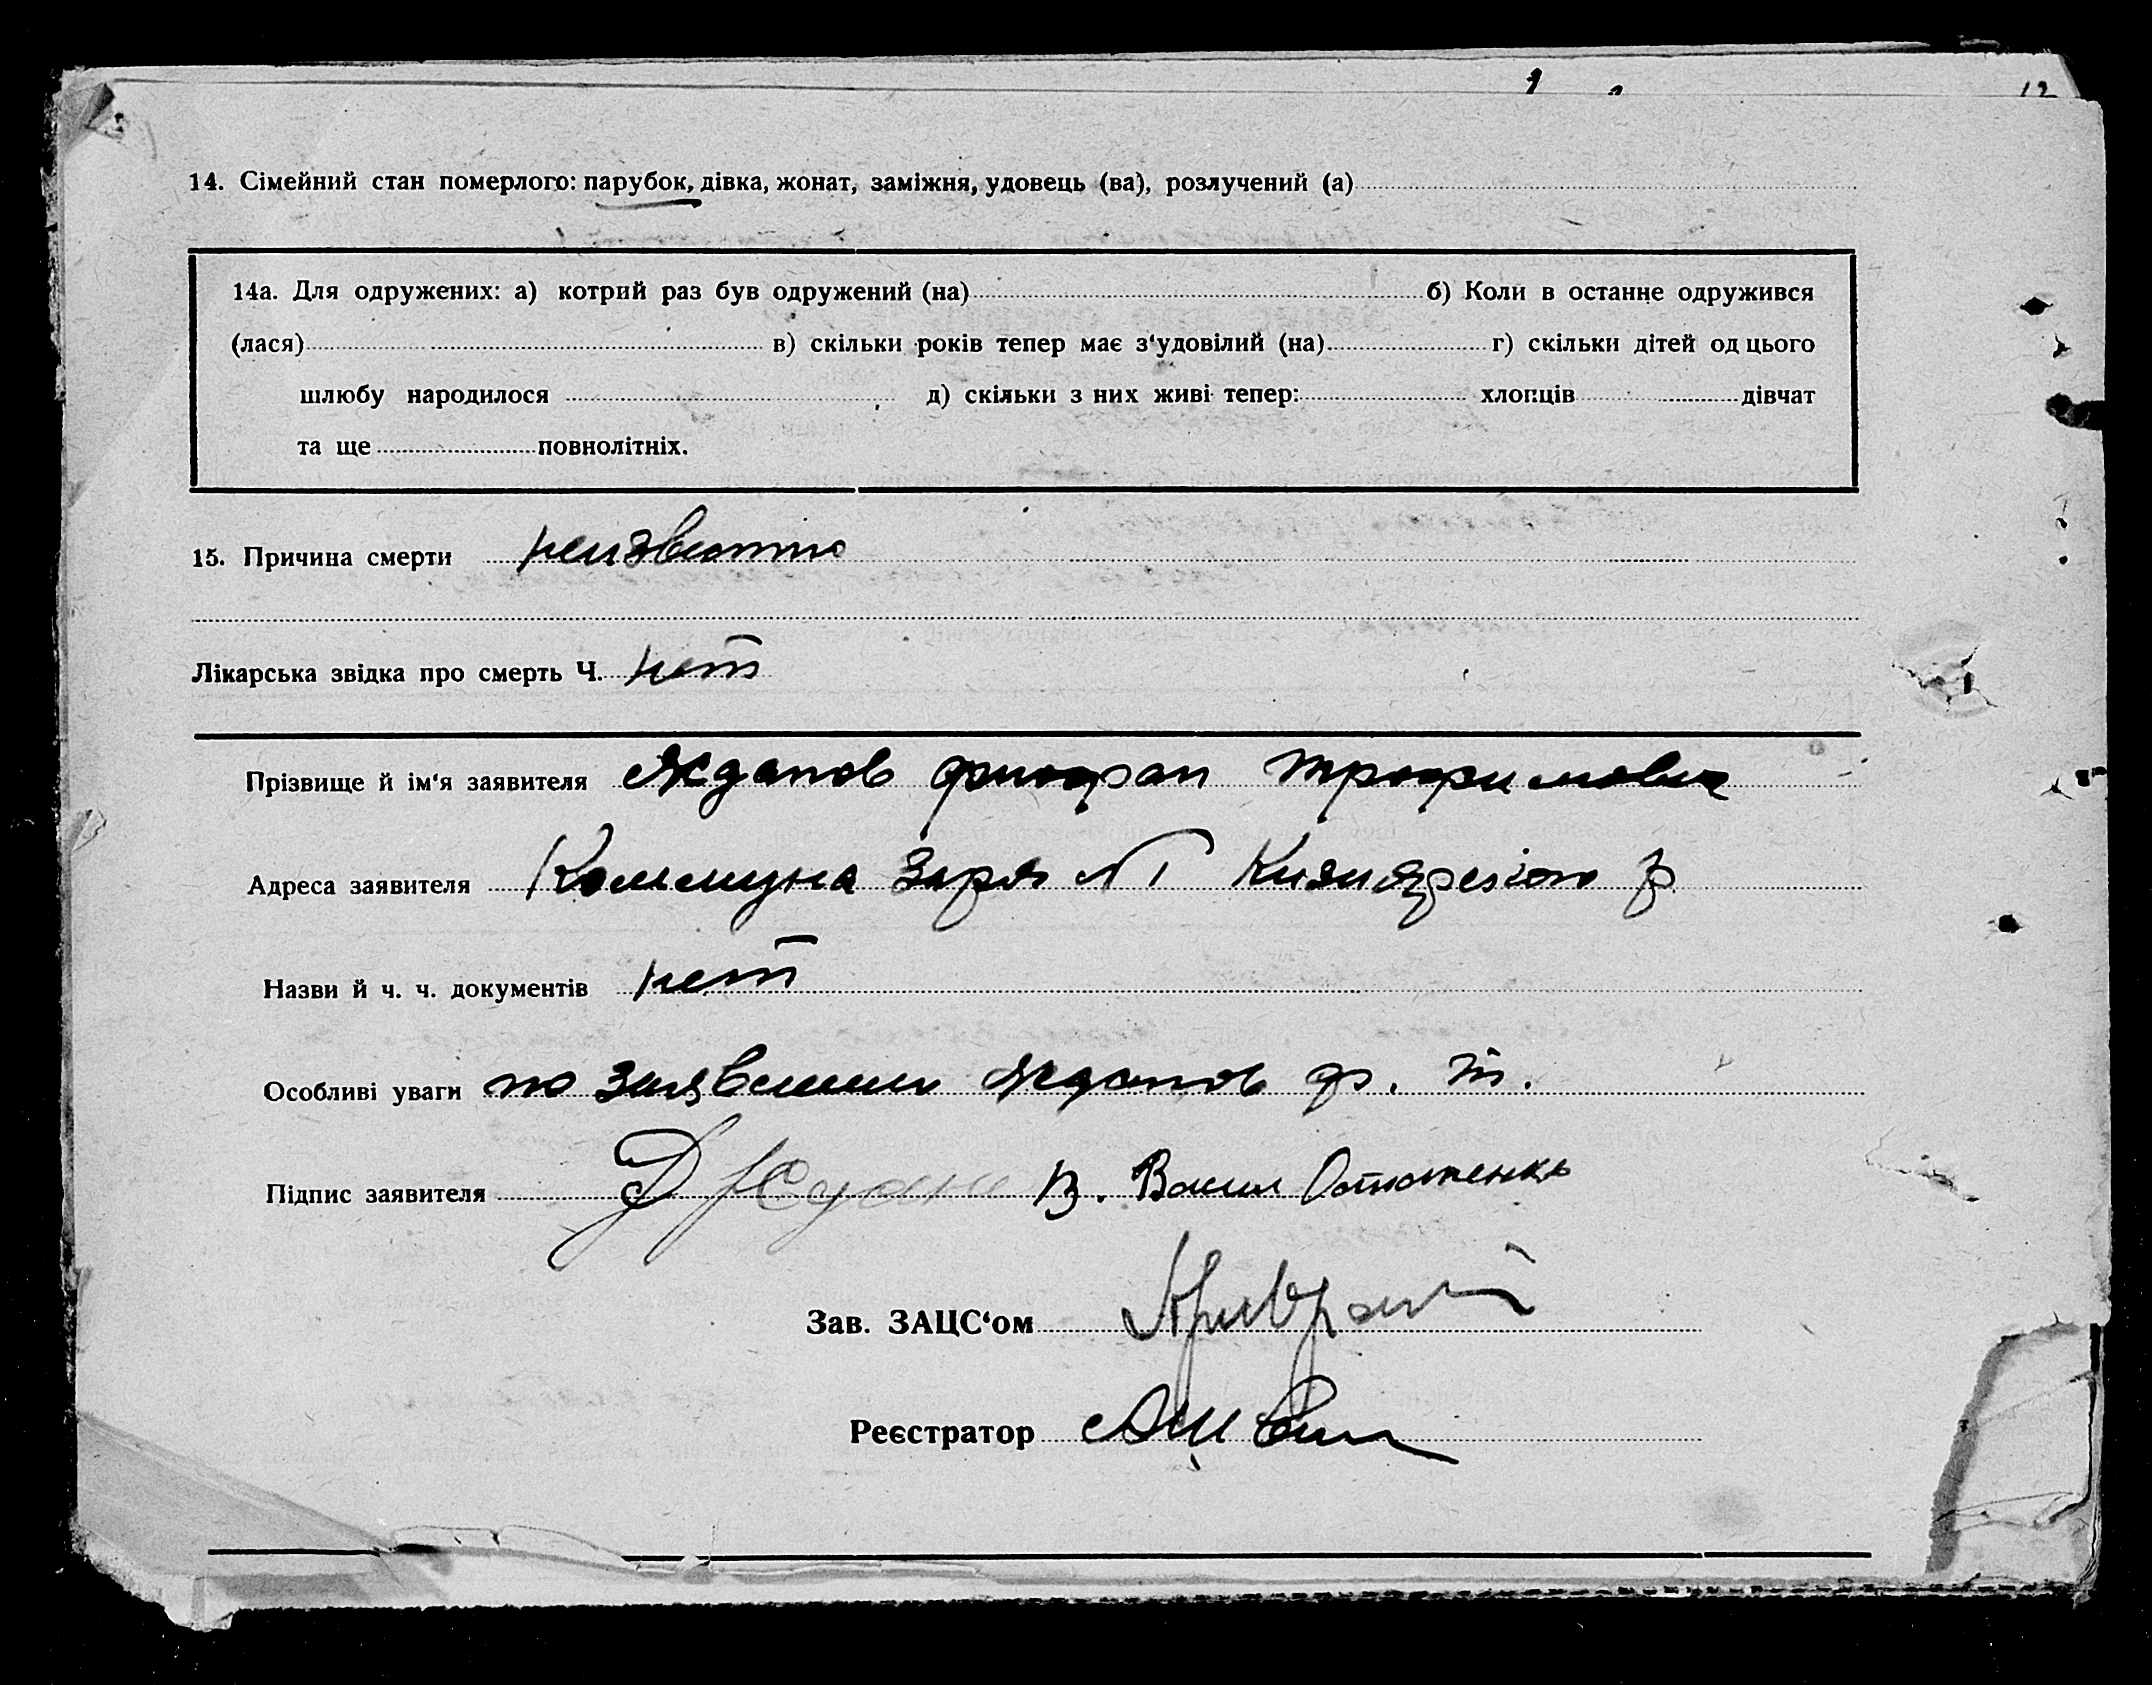 12
14. Сімейний стан померлого: парубок, дівка, жонат, заміжня, удовець (ва), розлучений (а)
14а. Для одружених: а) котрий раз був одружений (на) б) Коли в останнє одружився
(лася) в) скільки років тепер має з‘удовілий (на) г) скільки дітей од цього
шлюбу народилося д) скільки з них живі тепер: хлопців дівчат
та ще повнолітніх.
15. Причина смерти неизвестно
Лікарська звідка про смерть Ч. нет
Прізвище й ім‘я заявителя Жданов Трофимович
Адреса заявителя Коммуна Заря №1 р
Назви й ч. ч. документів нет
Особливі уваги по заявлении Жданов ф. Т.
Підпис заявителя
Зав. ЗАЦС‘ом
Реєстратор